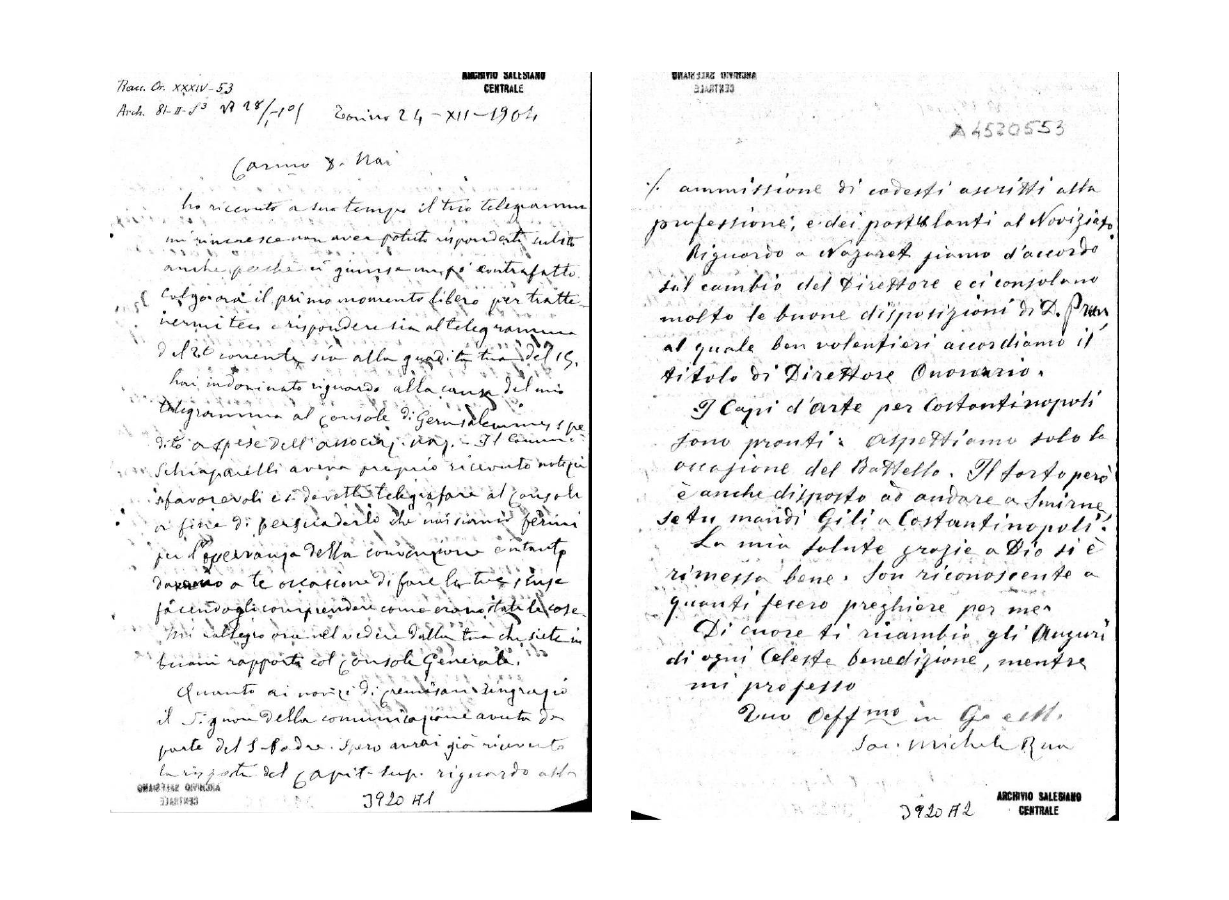 ARCHIVIO SALESIANO
CENTRALE
Trasc. Or. XXXIV-53
Arch. 81-II-53
Torino 24-XII-1904
Carissimo D. Nai
ho ricevuto a suo tempo il tuo telegramma
mi rincresce non aver potuto risponderti subito
anche perchè ci giunse un po' contrafatto.
Colgo ora il primo momento libero per tratte-
nermi teco e rispondere sia al telegramma
del corrente sia alla tua del 15.
hai indovinato riguardo alla causa del mio
telegramma al console di Gerusalemme, spe
dito a spese dell'associaz. naz. - Il Comm.
Schiaparelli aveva proprio ricevuto notizie
sfavorevoli e si dovette telegrafare al console
a fine di persuaderlo che noi siamo fermi
per l'osservanza della convenzione e intanto
a te occasione di fare le tue scuse
facendogli comprendere come erano state le cose.
Mi rallegro ora nel vedere dalla tua che siete in
buoni rapporti col console Generale.
Quanto ai novizi di Cremisan ringrazio
il Signore della comunicazione avuta da
parte del S. Padre. Spero avrai già ricevuto
la risposta del Capit. Sup. riguardo alla
ARCHIVIO SALESIANO
CENTRALE
3920 A1
ARCHIVIO SALESIANO
CENTRALE
A4520553
./. ammissione di codesti ascritti alla
professione, e dei postulanti al Noviziato.
Riguardo a Nazaret siamo d'accordo
sul cambio del Direttore e ci consolano
molto le buone disposizioni di D. Prun,
al quale ben volentieri accordiamo il
titolo di Direttore Onorario.
I Capi d'arte per Costantinopoli
sono pronti: aspettiamo solo la
occasione del Battello. Il torto però
è anche disposto ad andare a Smirne,
se tu mandi Gili a Costantinopoli.
La mia salute grazie a Dio si è
rimessa bene. Son riconoscente a
quanti fecero preghiere per me.
Di cuore ti ricambio gli Auguri
di ogni Celeste benedizione, mentre
mi professo
Tuo Aff.mo in G. e M.
Sac. Michele Rua
3920 A2
ARCHIVIO SALESIANO
CENTRALE